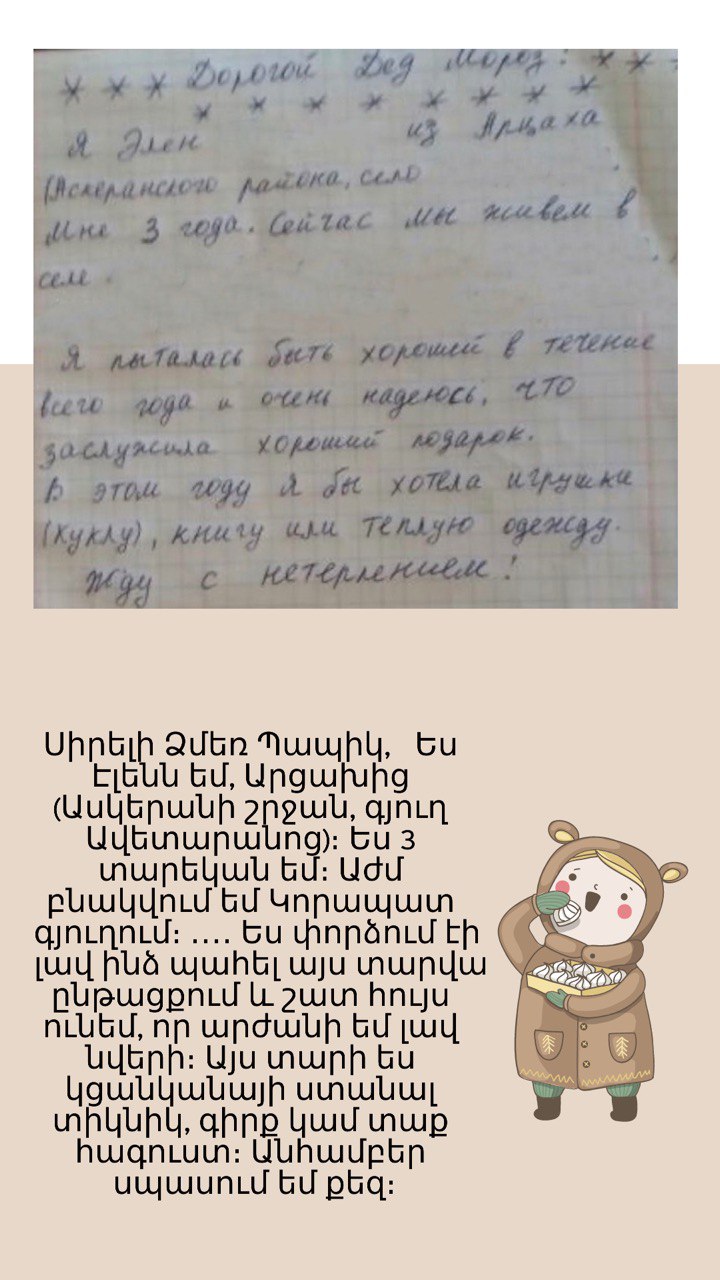 * * * Дорогой Дед Мороз! * * *
* * * * * * * *
Я Элен из Арцаха
(Аскеранского района, село
Мне 3 года. Сейчас мы живем в
селе.
Я пыталась быть хорошей в течение
всего года и очень надеюсь, что
заслужила хороший подарок.
В этом году я бы хотела игрушки
(куклу), книгу или теплую одежду.
Жду с нетерпением!
Սիրելի Ձմեռ Պապիկ, Ես
Էլենն եմ, Արցախից
(Ասկերանի շրջան, գյուղ
Ավետարանոց)։ Ես 3
տարեկան եմ։ Աժմ
բնակվում եմ Կորապատ
գյուղում։ .... Ես փորձում էի
լավ ինձ պահել այս տարվա
ընթացքում և շատ հույս
ունեմ, որ արժանի եմ լավ
նվերի։ Այս տարի ես
կցանկանայի ստանալ
տիկնիկ, գիրք կամ տաք
հագուստ։ Անհամբեր
սպասում եմ քեզ։